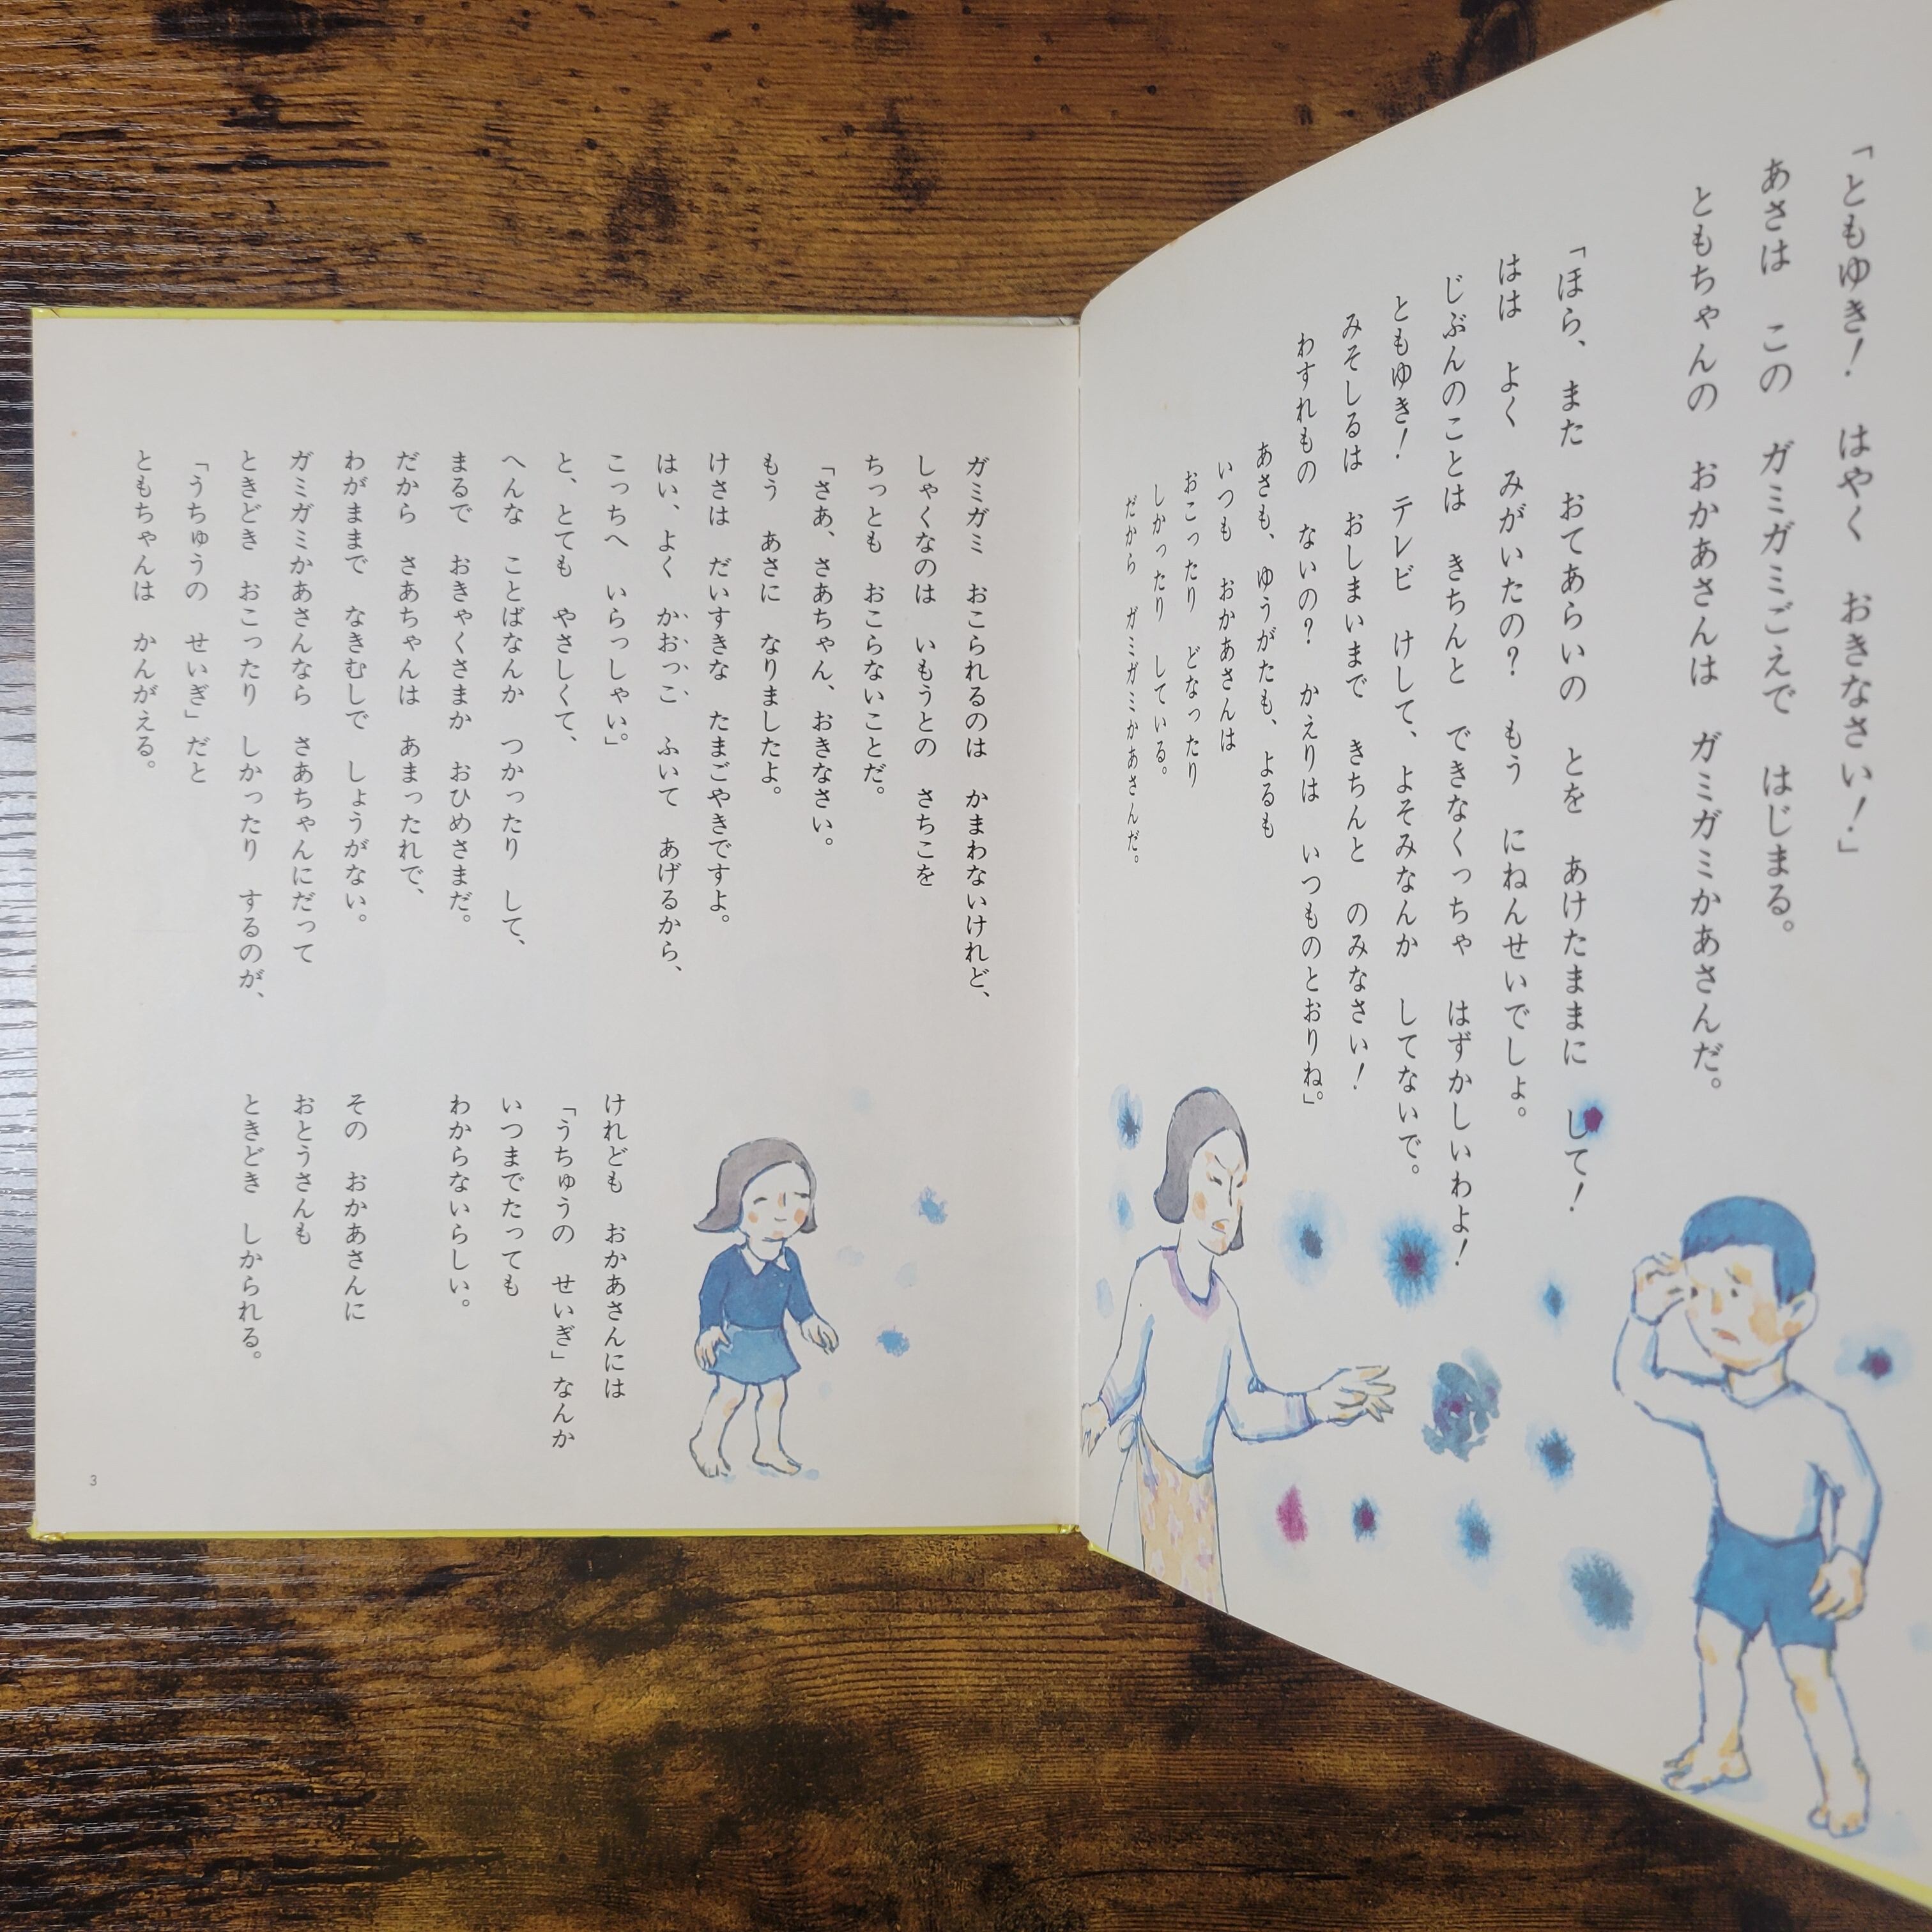 「ともゆき！　はやく　おきなさい！」
あさは　この　ガミガミごえで　はじまる。
ともちゃんの　おかあさんは　ガミガミかあさんだ。
「ほら、また　おてあらいの　とを　あけたままに　して！
はは　よく　みがいたの？　もう　にねんせいでしょ。
じぶんのことは　きちんと　できなくっちゃ　はずかしいわよ！
ともゆき！　テレビ　けして、よそみなんか　してないで。
みそしるは　おしまいまで　きちんと　のみなさい！
わすれもの　ないの？　かえりは　いつものとおりね。」
あさも、ゆうがたも、よるも
いつも　おかあさんは
おこったり　どなったり
しかったり　している。
だから　ガミガミかあさんだ。
ガミガミ　おこられるのは　かまわないけれど、
しゃくなのは　いもうとの　さちこを
ちっとも　おこらないことだ。
「さあ、さあちゃん、おきなさい。
もう　あさに　なりましたよ。
けさは　だいすきな　たまごやきですよ。
はい、よく　かおっこ　ふいて　あげるから、
こっちへ　いらっしゃい。」
と、とても　やさしくて、
へんな　ことばなんか　つかったり　して、
まるで　おきゃくさまか　おひめさまだ。
だから　さあちゃんは　あまったれで、
わがままで　なきむしで　しょうがない。
ガミガミかあさんなら　さあちゃんにだって
ときどき　おこったり　しかったり　するのが、
「うちゅうの　せいぎ」だと
ともちゃんは　かんがえる。
けれども　おかあさんには
「うちゅうの　せいぎ」なんか
いつまでたっても
わからないらしい。
その　おかあさんに
おとうさんも
ときどき　しかられる。
3